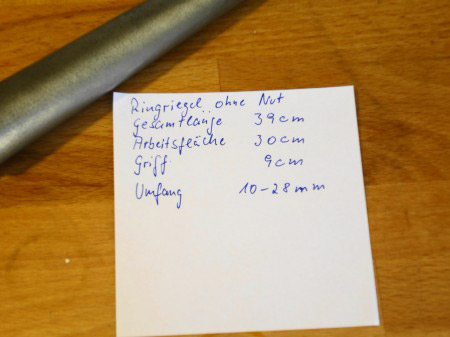 Ringriegel ohne Nut
Gesamtlänge 39cm
Arbeitsfläche 30cm
Griff 9cm
Umfang 10-28mm